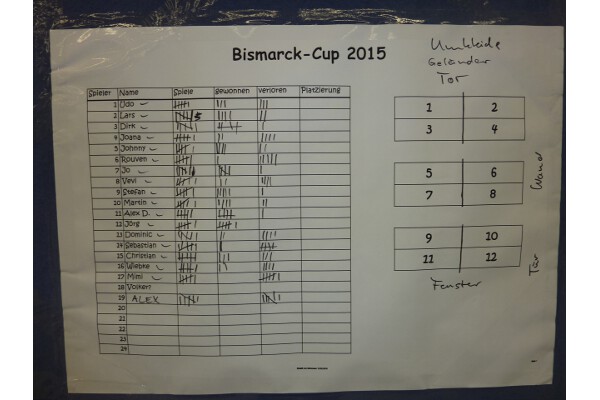 Bismarck-Cup 2015
Umkleide
Geländer
Tor
Spieler Name Spiele gewonnen verloren Platzierung
1 Udo
2 Lars 5
3 Dirk
4 Joana
5 Johnny
6 Rouven
7 Jo
8 Vevi
9 Stefan
10 Martin
11 Alex D.
12 Jörg
13 Dominic
14 Sebastian
15 Christian
16 Wiebke
17 Mimi
18 Volker?
19 ALEX
20
21
22
23
24
1 2
3 4
5 6
7 8
Wand
9 10
11 12
Tür
Fenster